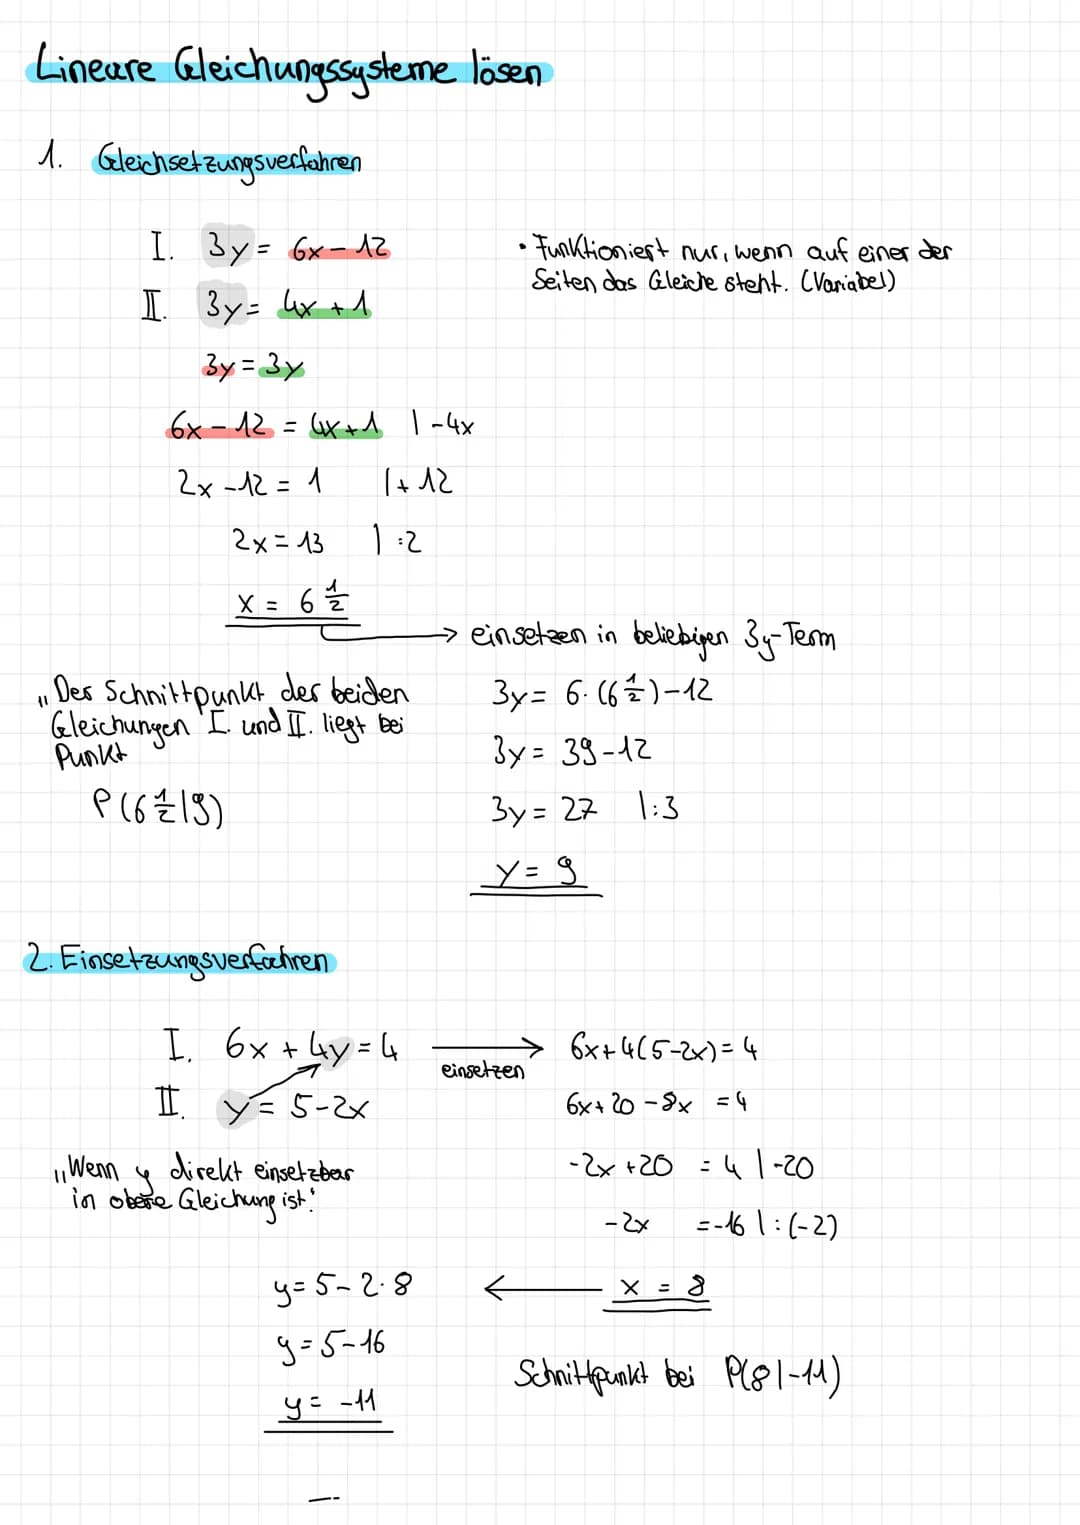 Lineare Gleichungssysteme lösen
1. Gleichsetzungsverfahren
I. 3y = 6x - 12
II. 3y = 4x + 1
• Funktioniert nur, wenn auf einer der
Seiten das Gleiche steht. (Variabel)
3y = 3y
6x - 12 = 4x + 1 | -4x
2x - 12 = 1 | + 12
2x = 13 | :2
x = 6 1/2
→ einsetzen in beliebigen 3y-Term
„Der Schnittpunkt der beiden
Gleichungen I. und II. liegt bei
Punkt
P(6 1/2 | 9)
3y = 6 · (6 1/2) - 12
3y = 39 - 12
3y = 27 | :3
y = 9
2. Einsetzungsverfahren
I. 6x + 4y = 4
II. y = 5 - 2x
einsetzen →
6x + 4(5 - 2x) = 4
6x + 20 - 8x = 4
-2x + 20 = 4 | -20
-2x = -16 | : (-2)
x = 8
„Wenn y direkt einsetzbar
in obere Gleichung ist."
←
y = 5 - 2 · 8
y = 5 - 16
y = -11
Schnittpunkt bei P(8 | -11)